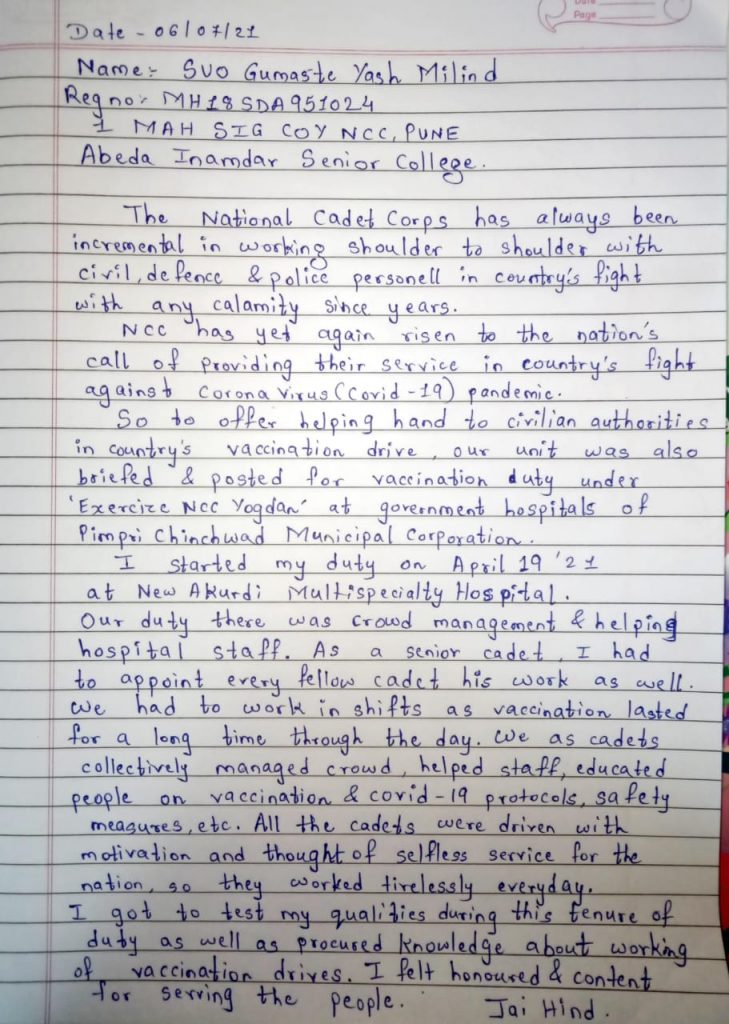 Date
Page
Date - 06/07/21
Name:- SUO Gumaste Yash Milind
Reg no:- MH18SDA951024
1 MAH SIG COY NCC, PUNE
Abeda Inamdar Senior College.
The National Cadet Corps has always been
incremental in working shoulder to shoulder with
civil, defence & police personell in country's fight
with any calamity since years.
NCC has yet again risen to the nation's
call of providing their service in country's fight
against Corona virus (Covid-19) pandemic.
So to offer helping hand to civilian authorities
in country's vaccination drive, our unit was also
briefed & posted for vaccination duty under
'Exercize NCC Yogdan' at government hospitals of
Pimpri Chinchwad Municipal Corporation.
I started my duty on April 19 '21
at New Akurdi Multispecialty Hospital.
Our duty there was crowd management & helping
hospital staff. As a senior cadet, I had
to appoint every fellow cadet his work as well.
We had to work in shifts as vaccination lasted
for a long time through the day. We as cadets
collectively managed crowd, helped staff, educated
people on vaccination & covid-19 protocols, safety
measures, etc. All the cadets were driven with
motivation and thought of selfless service for the
nation, so they worked tirelessly everyday.
I got to test my qualities during this tenure of
duty as well as procured knowledge about working
of vaccination drives. I felt honoured & content
for serving the people. Jai Hind.